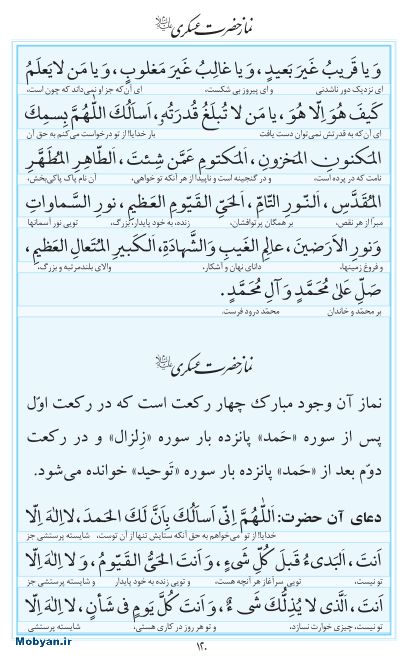 نماز حضرت عسکری علیه‌السلام
وَ یا قَریبُ غَیرَ بَعیدٍ، وَ یا غالِبُ غَیرَ مَغلوبٍ، وَ یا مَن لا یَعلَمُ
ای نزدیک دور ناشدنی و ای پیروز بی شکست، ای آن‌که جز او نمی‌داند که چون است،
کَیفَ هُوَ اِلّا هُوَ، یا مَن لا تُبلَغُ قُدرَتُهُ، اَسأَلُکَ اللّٰهُمَّ بِسمِکَ
ای آن‌که به قدرتش نمی‌توان دست یافت بار خدایا! از تو درخواست می‌کنم به حق آن
المَکنونِ المَخزونِ، اَلمَکتومِ عَمَّن شِئتَ، اَلطّاهِرِ المُطَهَّرِ
نامت که در پرده است، و در گنجینه است و ناپیدا از هر آنکه تو خواهی، آن نام پاک پاکی‌بخش،
المُقَدَّسِ، اَلنّورِ التّامِّ، اَلحَیِّ القَیّومِ العَظیمِ، نورِ السَّماواتِ
مبرا از هر نقص، بر همگان پرتوافشان، زنده، به خود پایدار، بزرگ، تویی نور آسمانها
وَ نورِ الاَرَضینَ، عالِمِ الغَیبِ وَ الشَّهادَةِ، اَلکَبیرِ المُتَعالِ العَظیمِ،
و فروغ زمینها، دانای نهان و آشکار، والای بلندمرتبه و بزرگ،
صَلِّ عَلیٰ مُحَمَّدٍ وَ آلِ مُحَمَّدٍ.
بر محمّد و خاندان محمّد درود فرست.
نماز حضرت عسکری علیه‌السلام
نماز آن وجود مبارک چهار رکعت است که در رکعت اوّل
پس از سوره «حَمد» پانزده بار سوره «زِلزال» و در رکعت
دوّم بعد از «حَمد» پانزده بار سوره «تَوحید» خوانده می‌شود.
دعای آن حضرت: اَللّٰهُمَّ اِنّی اَسأَلُکَ بِاَنَّ لَکَ الحَمدَ، لا اِلٰهَ اِلّا
خدایا! از تو می‌خواهم به حق آنکه ستایش تنها از آن توست، شایسته پرستشی جز
اَنتَ، اَلبَدیءُ قَبلَ کُلِّ شَیءٍ، وَ اَنتَ الحَیُّ القَیّومُ، وَ لا اِلٰهَ اِلّا
تو نیست، تویی سرآغاز هر آنچه هست، و تویی زنده به خود پایدار و شایسته پرستشی جز
اَنتَ، اَلَّذی لا یُذِلُّکَ شَیءٌ، وَ اَنتَ کُلَّ یَومٍ فی شَأنٍ، لا اِلٰهَ اِلّا
تو نیست، چیزی خوارت نسازد، و تو هر روز در کاری هستی، شایسته پرستشی
۱۲۰
Mobyan.ir